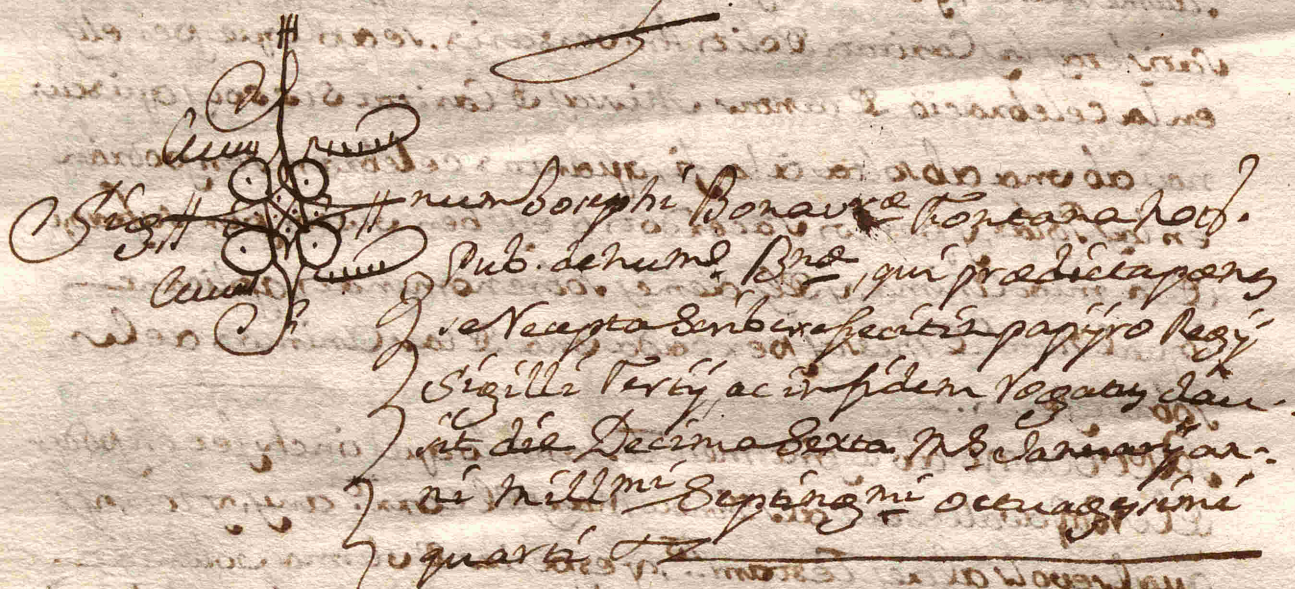 Sig num Josephi Bonavræ Fontana Notj.
Pub. de num.º Bnæ, qui prædicta penes
se Recepta Scribere fecit in papÿro Regÿ
Sigilli Tertÿ, ac in fidem Rogatus clau-
sit die Decima Sexta Ms Januarÿ an-
ni Millmi Septingmi octuagesimi
quarti